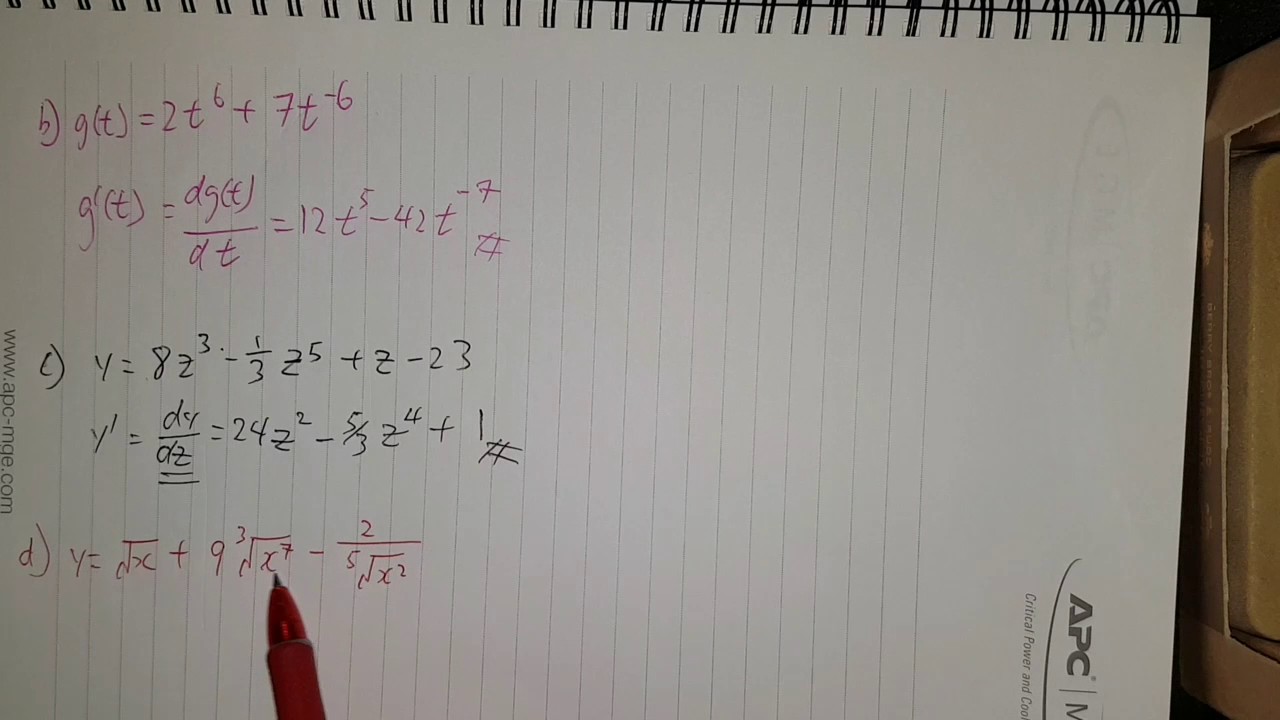 b) g(t) = 2t⁶ + 7t⁻⁶
g'(t) = dg(t)/dt = 12t⁵ - 42t⁻⁷ #
c) y = 8z³ - 1/3 z⁵ + z - 23
y' = dy/dz = 24z² - 5/3 z⁴ + 1 #
d) y = √x + 9 ³√x⁷ - 2/⁵√x²
www.apc-mge.com
APC | M
Critical Power and Cool